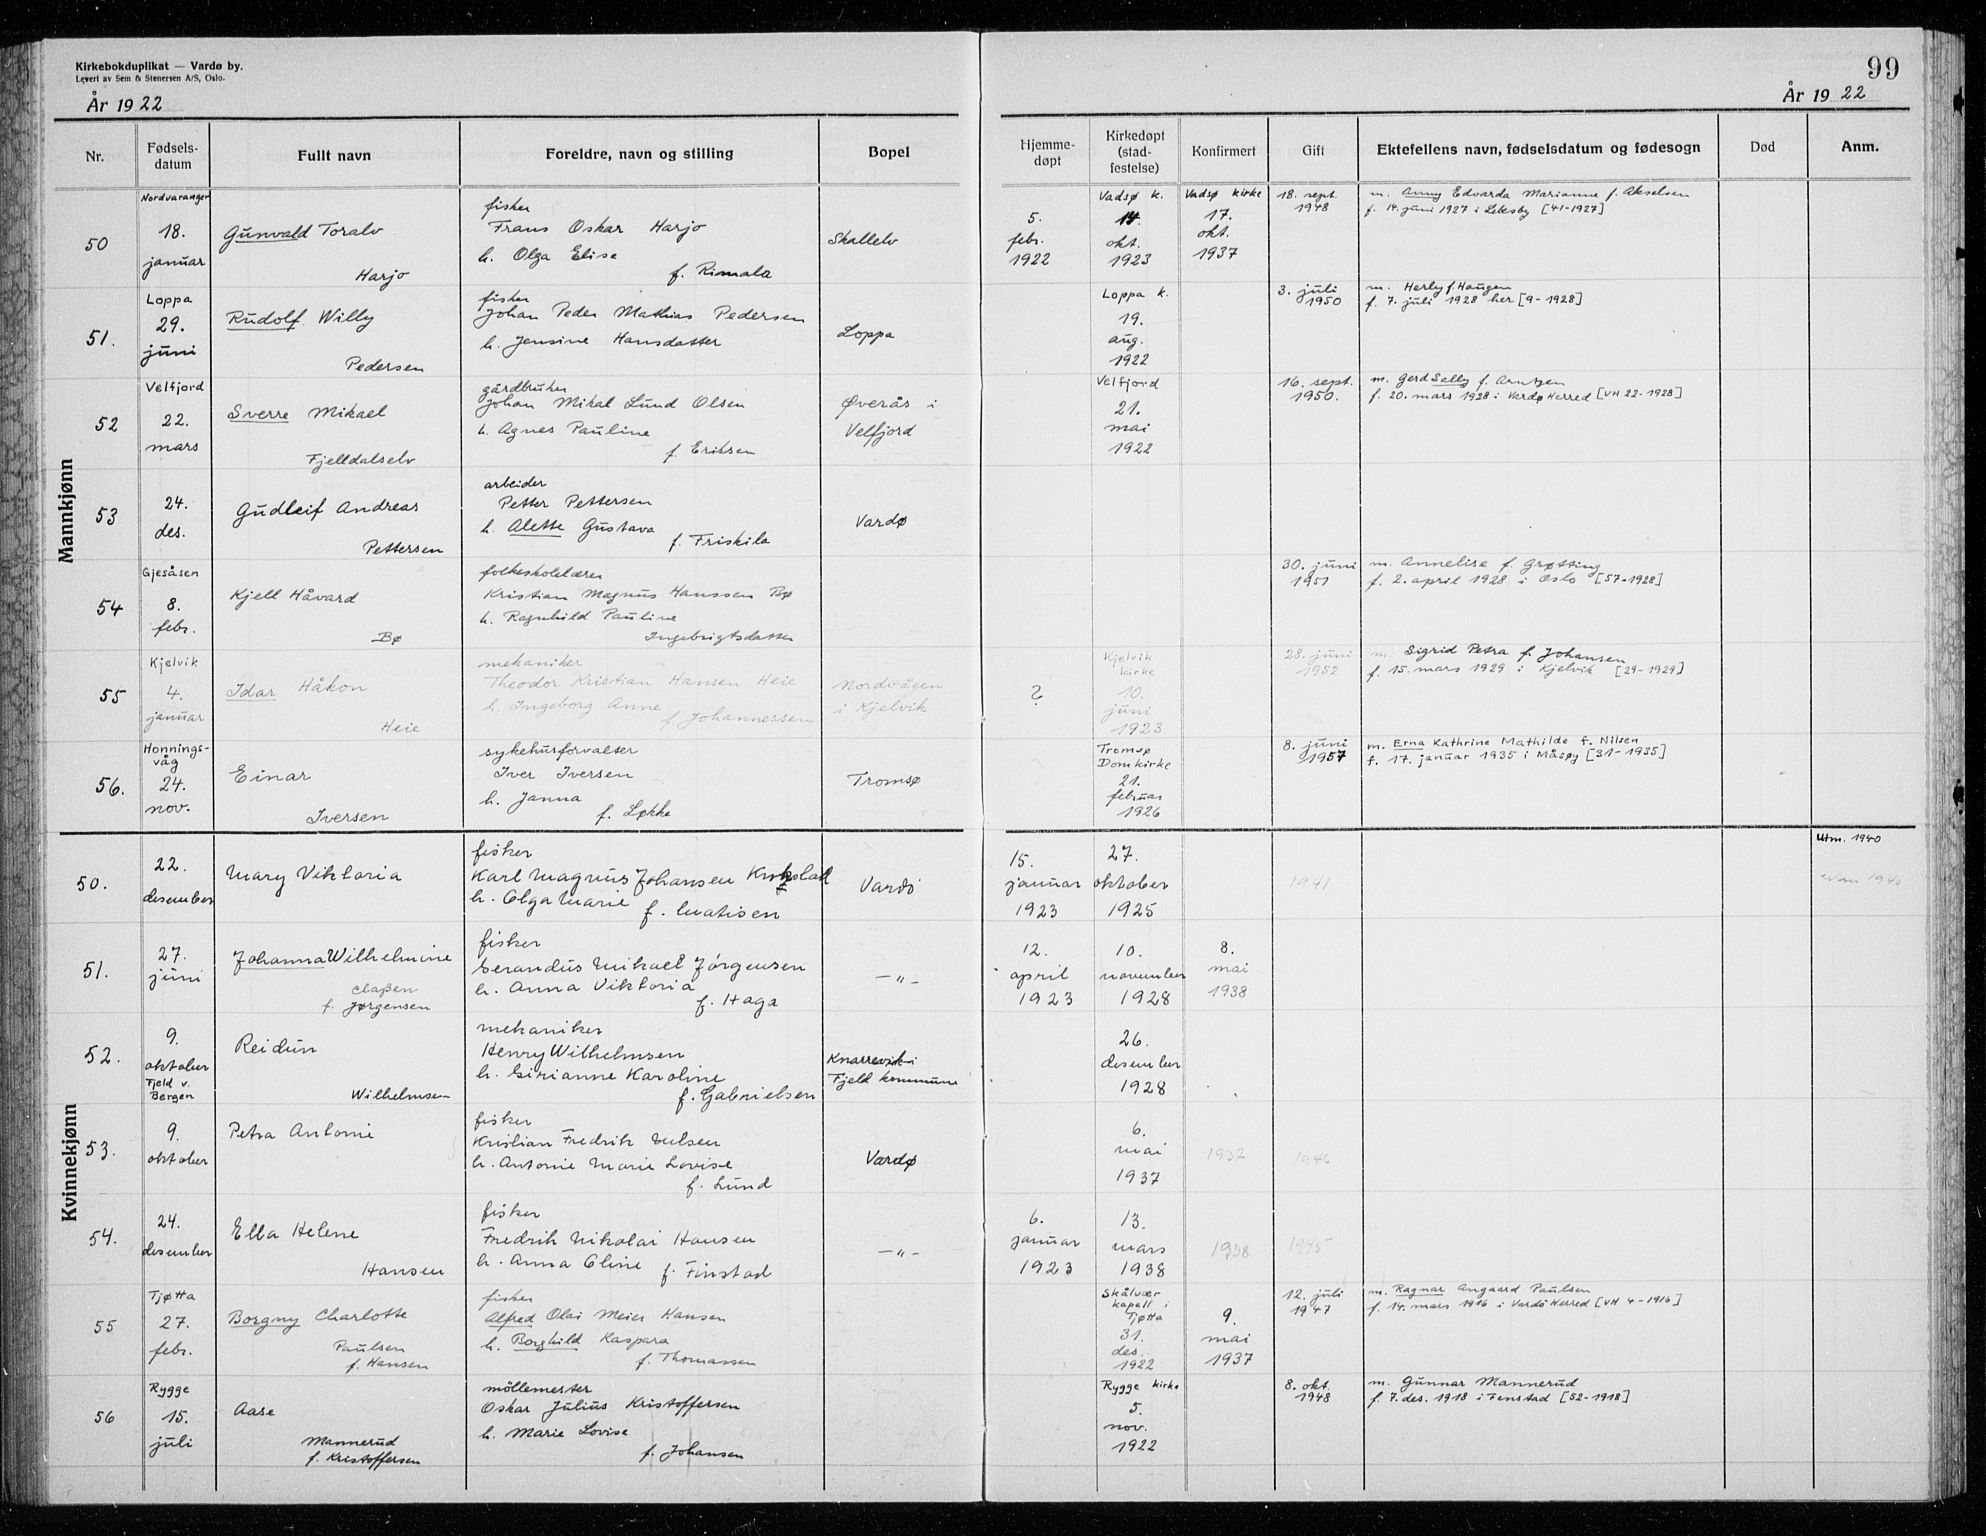 Kirkebokduplikat — Vardø by.
Levert av Sem & Stenersen A/S, Oslo.
År 1922
99
År 1922
Nr.
Fødsels-
datum
Fullt navn
Foreldre, navn og stilling
Bopel
Hjemme-
døpt
Kirkedøpt
(stad-
festelse)
Konfirmert
Gift
Ektefellens navn, fødselsdatum og fødesogn
Død
Anm.
Mannkjønn
50
Nordvaranger
18.
januar
Gunvald Toralv
Harjo
fisker
Frans Oskar Harjo
h. Olga Elise
f. Rimala
Skallelv
5.
febr.
1922
Vadsø k.
14.
okt.
1923
Vadsø kirke
17.
okt.
1937
18. sept.
1948
m. Anny Edvarda Marianne f. Akselsen
f. 14. juni 1927 i Lebesby [41-1927]
51.
Loppa
29.
juni
Rudolf Willy
Pedersen
fisker
Johan Peder Mathias Pedersen
h. Jensine Hansdatter
Loppa
Loppa k.
19.
aug.
1922
3. juli
1950
m. Herly f. Haugen
f. 7. juli 1928 her [9-1928]
52
Velfjord
22.
mars
Sverre Mikael
Fjelldalselv
gårdbruker
Johan Mikal Lund Olsen
h. Agnes Pauline
f. Eriksen
Øverås i
Velfjord
Velfjord
21.
mai
1922
16. sept.
1950.
m. Gerd Selly f. Arntzen
f. 20. mars 1928 i Vardø Herred [VH 22-1928]
53
24.
des.
Gudleif Andreas
Pettersen
arbeider
Petter Pettersen
h. Alette Gustava
f. Friskila
Vardø
54
Gjesåsen
8.
febr.
Kjell Håvard
Bø
folkeskolelærer
Kristian Magnus Hanssen Bø
h. Ragnhild Pauline
Ingebrigtsdatter
30. juni
1951
m. Annelise f. Grøtting
f. 2. april 1928 i Oslo [57-1928]
55
Kjelvik
4.
januar
Idar Håkon
Heie
mekaniker
Theodor Kristian Hansen Heie
h. Ingeborg Anne
f. Johannessen
Nordvågen
i Kjelvik
?
Kjelvik
kirke
10.
juni
1923
28. juni
1952
m. Sigrid Petra f. Johansen
f. 15. mars 1929 i Kjelvik [29-1929]
56.
Honnings-
våg
24.
nov.
Einar
Iversen
sykehusforvalter
Iver Iversen
h. Janna
f. Løkke
Tromsø
Tromsø
Domkirke
21.
februar
1926
8. juni
1957
m. Erna Kathrine Mathilde f. Nilsen
f. 17. januar 1935 i Måsøy [31-1935]
Kvinnekjønn
50.
22.
desember
Mary Viktoria
fisker
Karl Magnus Johansen
h. Olga Marie
f. Matisen
Vardø
15.
januar
1923
27.
oktober
1925
1941
Utm. 1940
Utm 1940
51.
27.
juni
Johanna Wilhelmine
Claßen
f. Jørgensen
fisker
Gerandus Mikael Jørgensen
h. Anna Viktoria
f. Haga
—"—
12.
april
1923
10.
november
1928
8.
mai
1938
52.
9.
oktober
Fjeld v.
Bergen
Reidun
Wilhelmsen
mekaniker
Henry Wilhelmsen
h. Girianne Karoline
f. Gabrielsen
Knarrevik i
Fjeld kommune
26.
desember
1928
53.
9.
oktober
Petra Antonie
fisker
Kristian Fredrik Nilsen
h. Antonie Marie Lovise
f. Lund
Vardø
6.
mai
1937
1937
1946
54.
24.
desember
Ella Helene
Hansen
fisker
Fredrik Nikolai Hansen
h. Anna Oline
f. Finstad
—"—
6.
januar
1923
13.
mars
1938
1938
1945
55
Tjøtta
27.
febr.
Borgny Charlotte
Paulsen
f. Hansen
fisker
Alfred Olai Meier Hansen
h. Borghild Kaspara
f. Thomassen
Skålvær
kapell i
Tjøtta
31.
des.
1922
9.
mai
1937
12. juli
1947
m. Ragnar Angaard Paulsen
f. 14. mars 1916 i Vardø Herred [VH 4-1916]
56
Rygge
15.
juli
Aase
Mannerud
f. Kristoffersen
möllemester
Oskar Julius Kristoffersen
h. Marie Lovise
f. Johansen
Rygge kirke
5.
nov.
1922
8. okt.
1948
m. Gunnar Mannerud
f. 7. des. 1918 i Fenstad [52-1918]